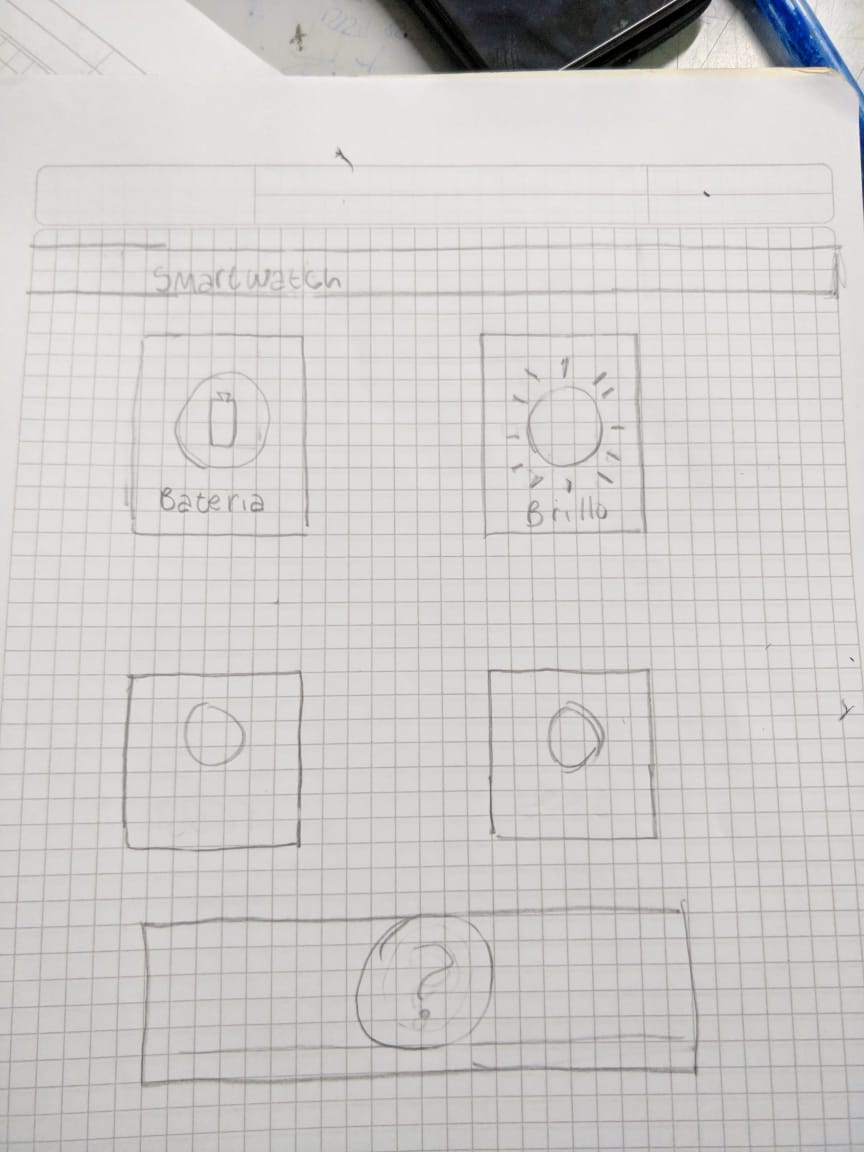 Smartwatch
Bateria
Brillo
?